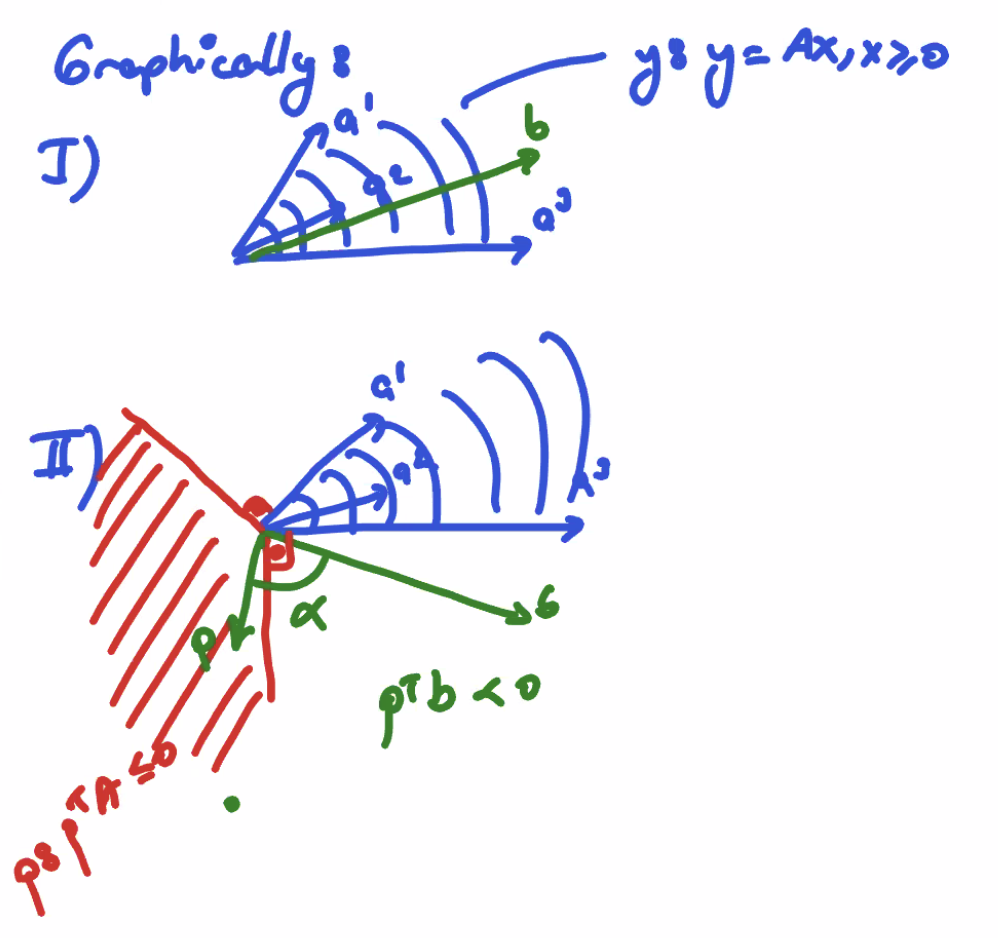 Graphically:
y: y = Ax, x ≥ 0
I)
a¹
b
a²
a³
II)
a¹
a²
A³
p
α
b
pᵀb < 0
p: pᵀA ≤ 0